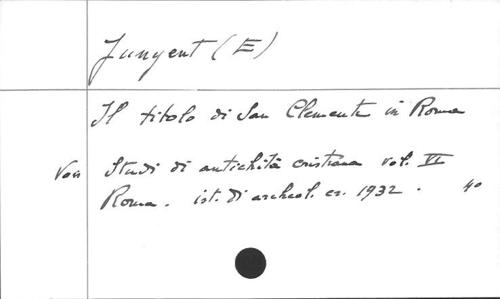 Junyent (E)
Il titolo di San Clemente in Roma
Voir Studi di antichità cristiana vol. VI
Roma. ist. di archeol. cr. 1932. 4o